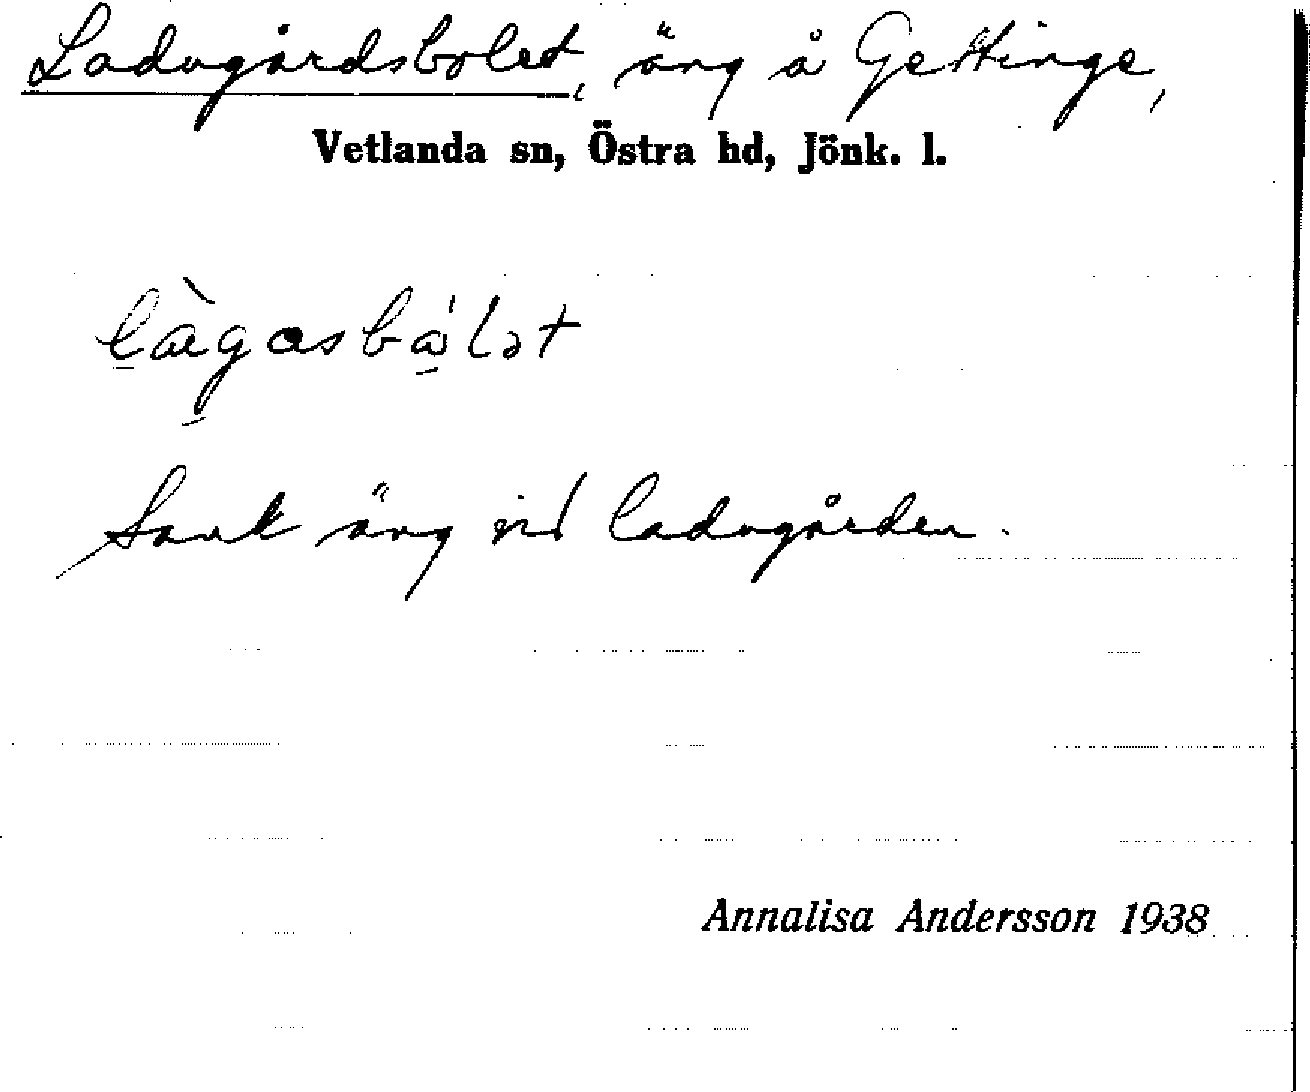 Ladugårdsbolet, äng å Gettinge,
Vetlanda sn, Östra hd, Jönk. l.
làgasbå'lət
Sank äng vid ladugården.
Annalisa Andersson 1938